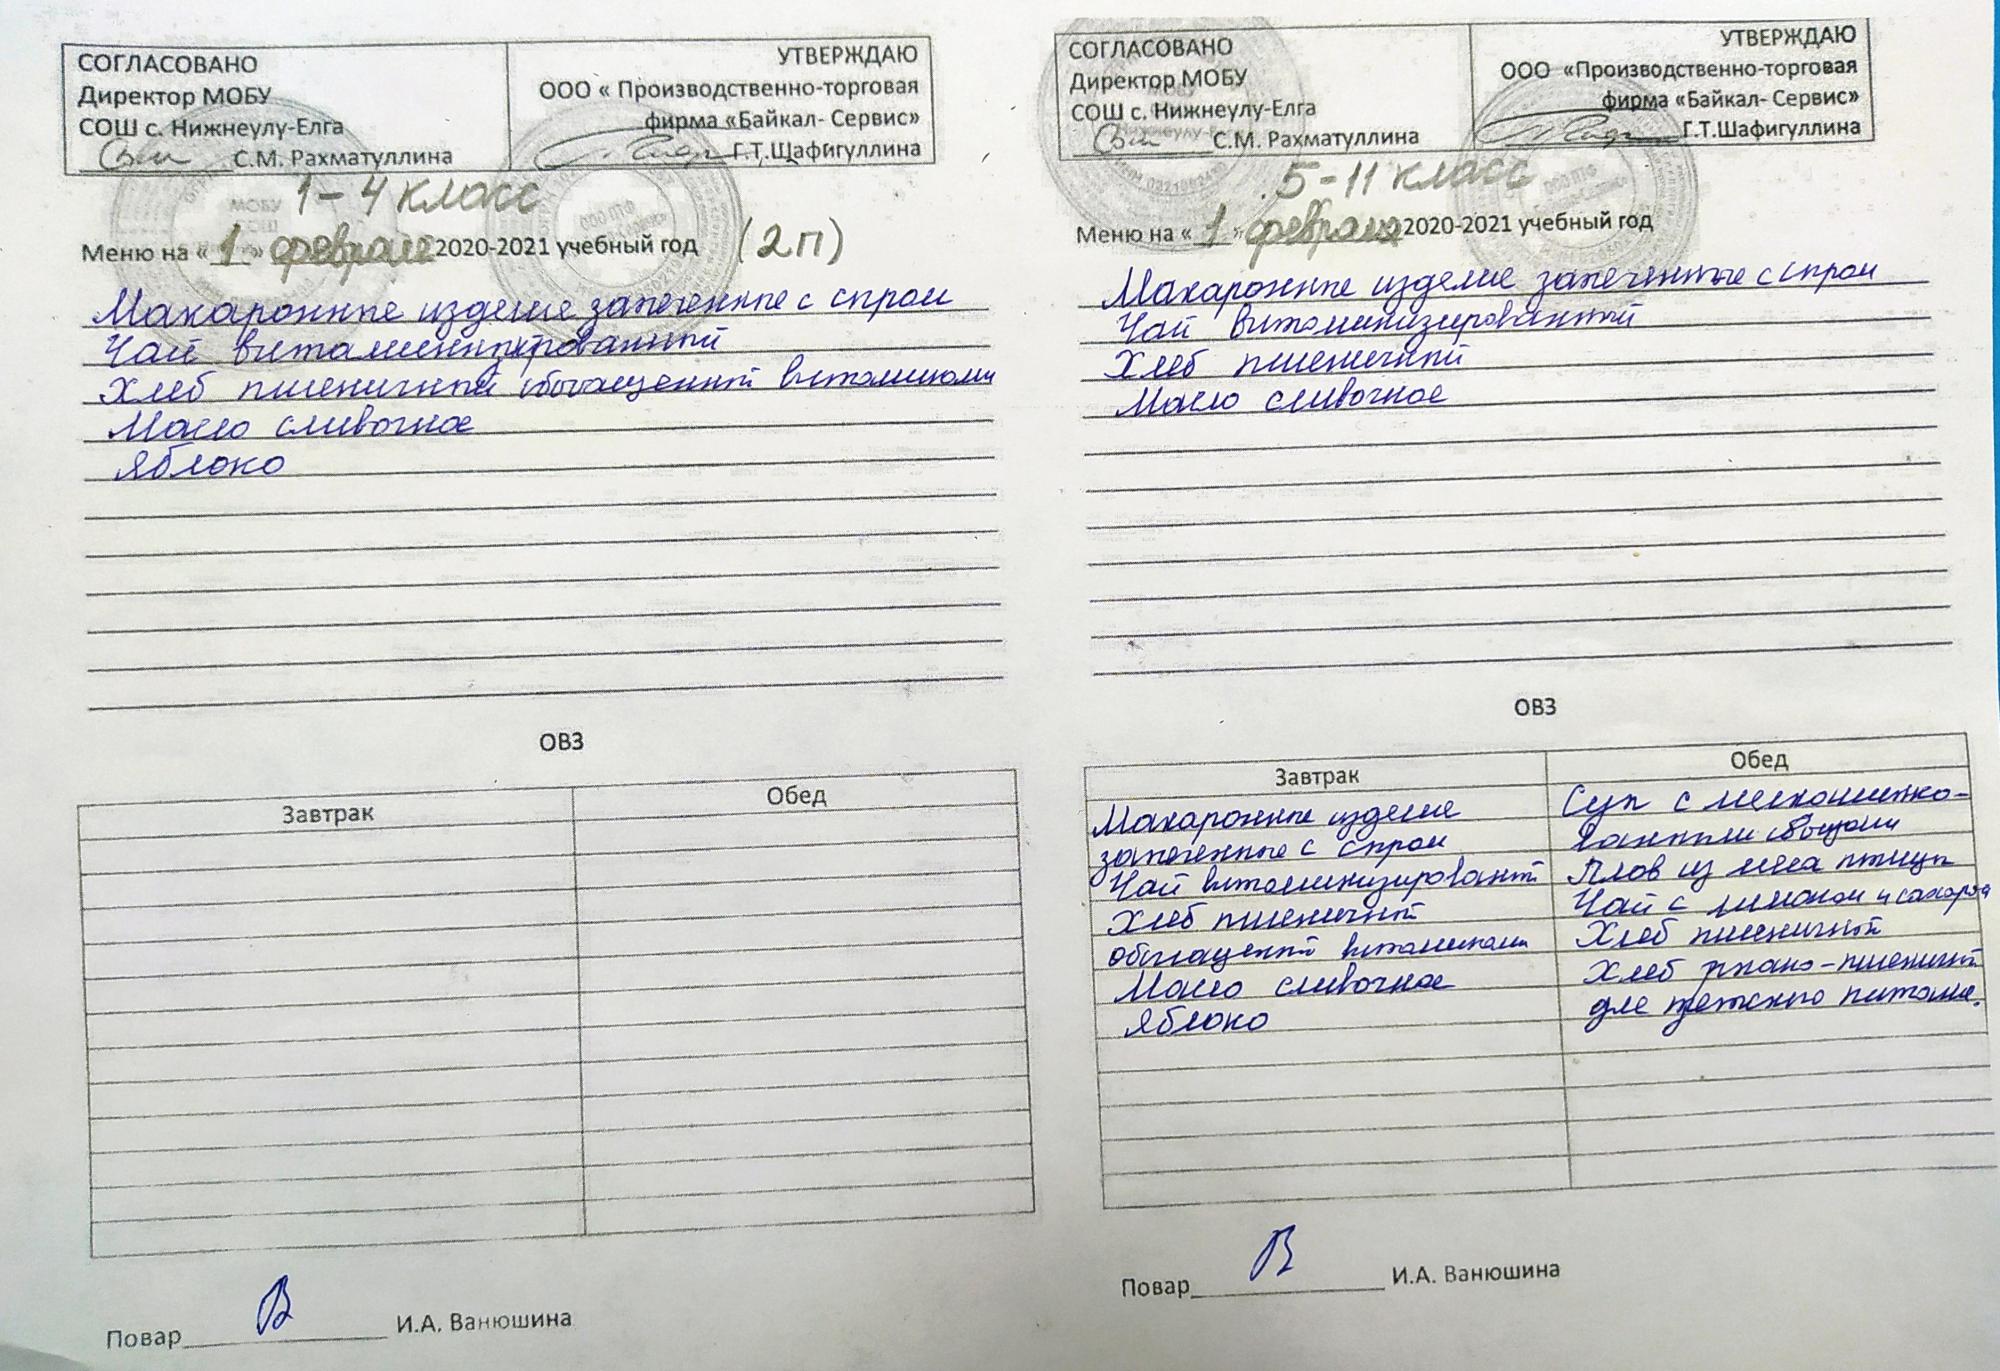 СОГЛАСОВАНО
Директор МОБУ
СОШ с. Нижнеулу-Елга
С.М. Рахматуллина
УТВЕРЖДАЮ
ООО « Производственно-торговая
фирма «Байкал- Сервис»
Г.Т.Шафигуллина
1-4 класс
Меню на « 1 » февраля 2020-2021 учебный год (2п)
Макаронные изделие запеченные с сыром
Чай витаминизированный
Хлеб пшеничный обогащенный витаминами
Масло сливочное
Яблоко
ОВЗ
Завтрак Обед
Повар И.А. Ванюшина
СОГЛАСОВАНО
Директор МОБУ
СОШ с. Нижнеулу-Елга
С.М. Рахматуллина
УТВЕРЖДАЮ
ООО «Производственно-торговая
фирма «Байкал- Сервис»
Г.Т.Шафигуллина
5-11 класс
Меню на « 1 » февраля 2020-2021 учебный год
Макаронные изделие запеченные с сыром
Чай витаминизированный
Хлеб пшеничный
Масло сливочное
ОВЗ
Завтрак
Макаронные изделие
запеченные с сыром
Чай витаминизированный
Хлеб пшеничный
обогащенный витаминами
Масло сливочное
Яблоко
Обед
Суп с мелкошинко-
ванными овощами
Плов из мяса птицы
Чай с лимоном и сахаром
Хлеб пшеничный
Хлеб ржано-пшеничный
для детского питания.
Повар И.А. Ванюшина